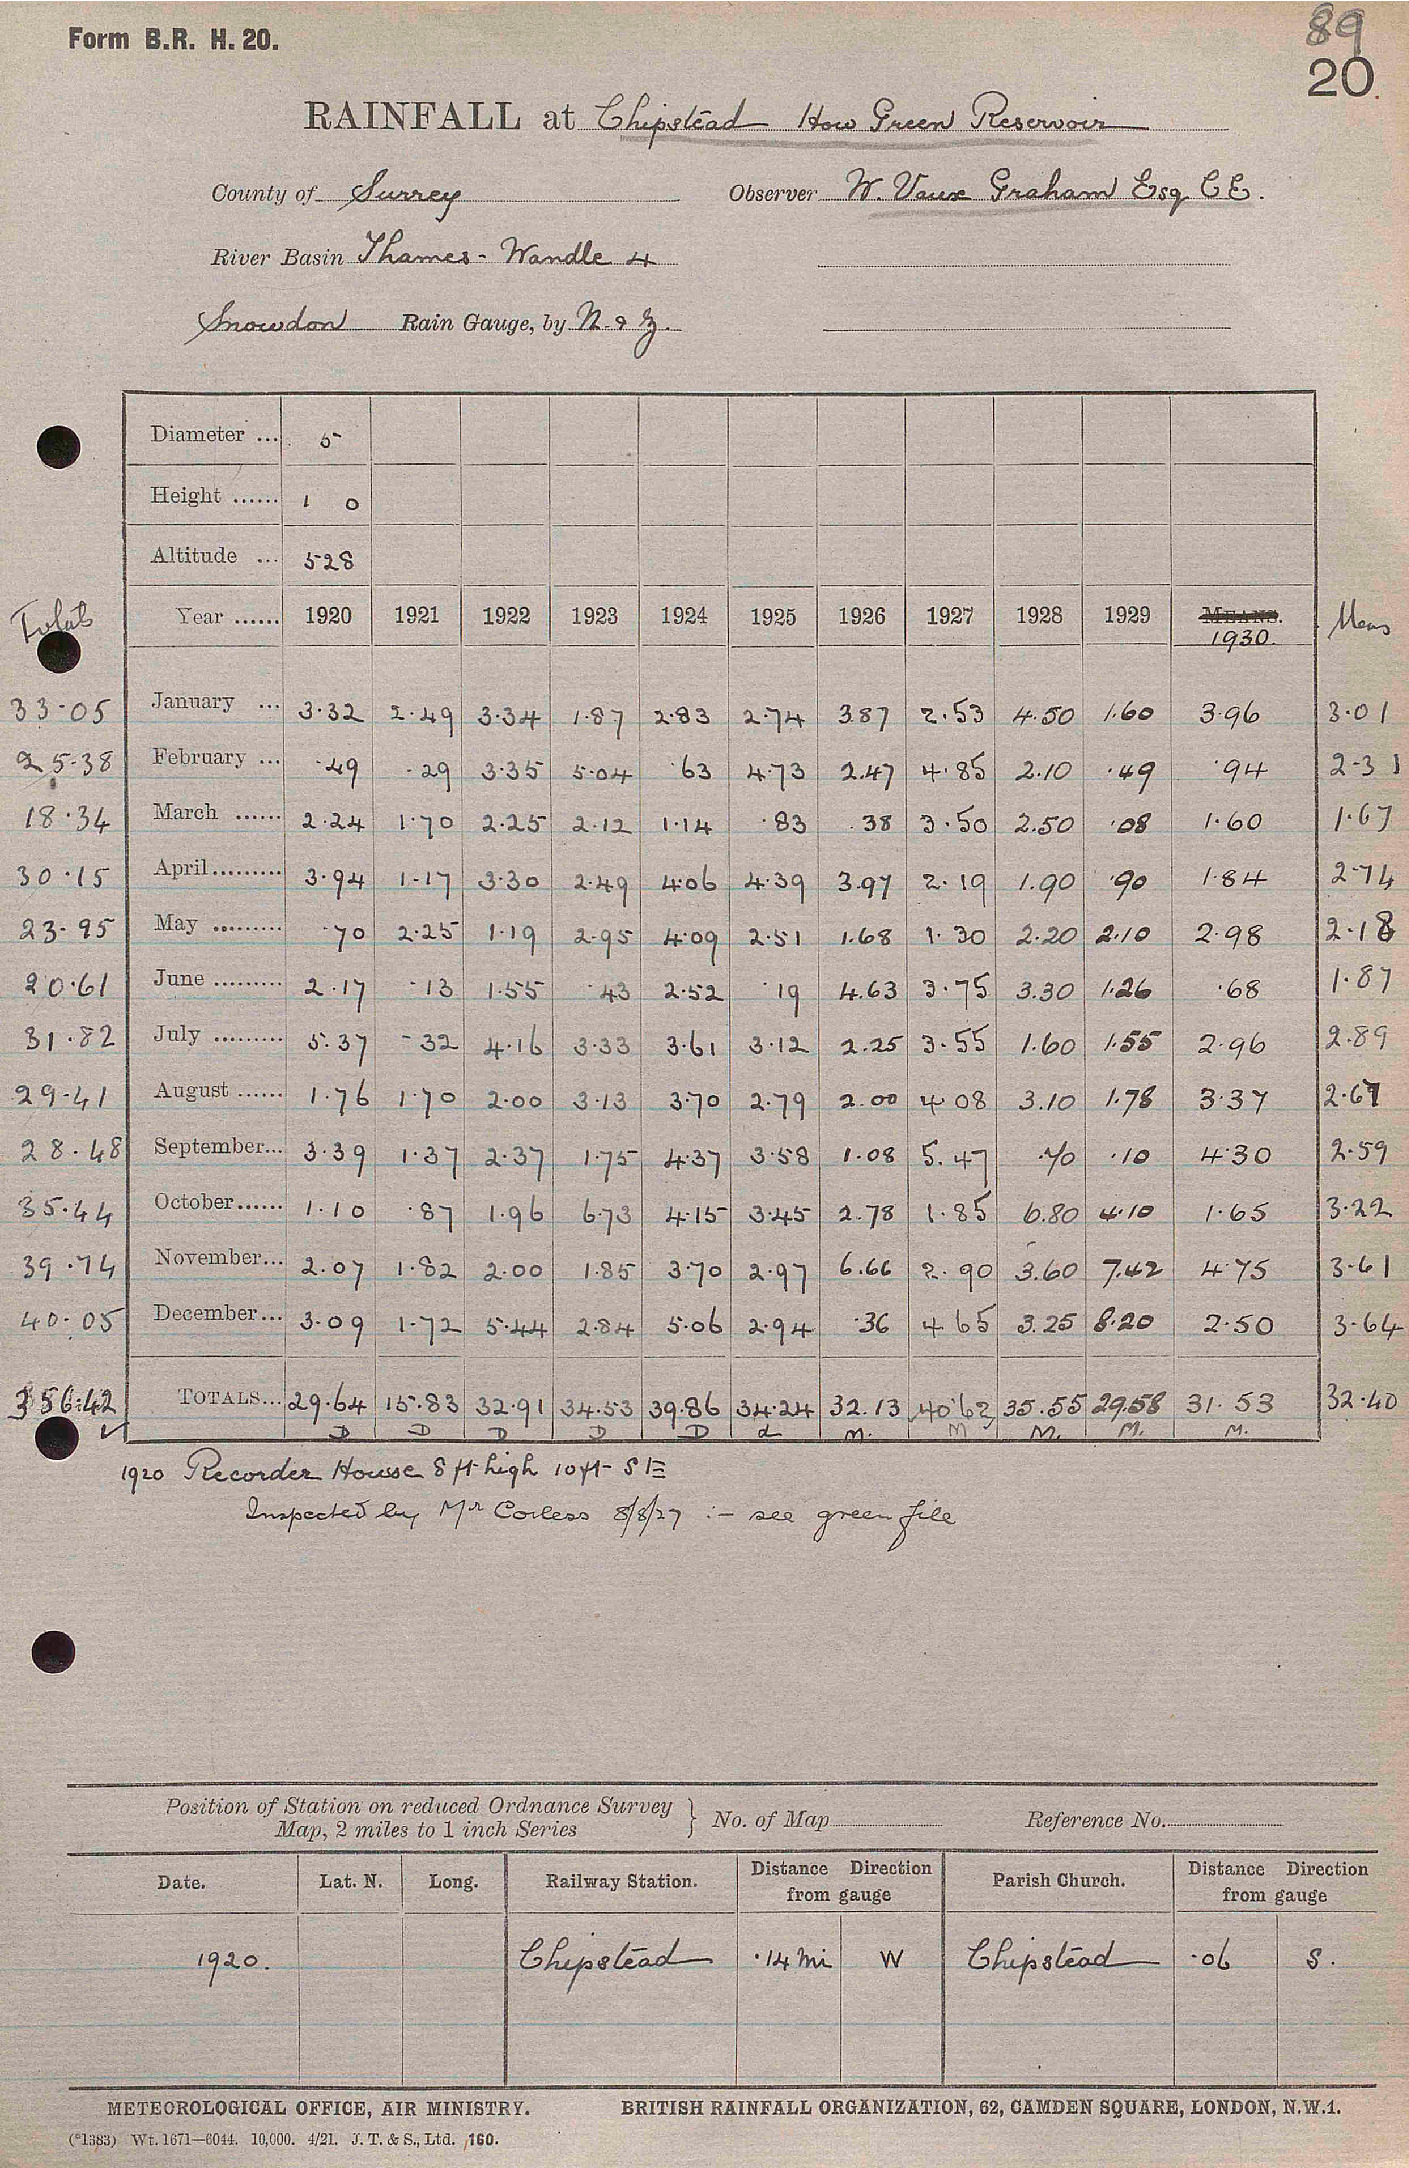 Form B.R. H. 20.
89
20.
RAINFALL at Chipstead How Green Reservoir
County of Surrey Observer W. Vaux Graham Esq. C E.
River Basin Thames - Wandle 4
Snowdon Rain Gauge, by N. & Z.
Diameter ... 5
Height ...... 1 0
Altitude ... 528
Totals Year ...... 1920 1921 1922 1923 1924 1925 1926 1927 1928 1929 MEANS. 1930. Means
33.05 January ... 3.32 2.49 3.34 1.87 2.83 2.74 3.87 2.53 4.50 1.60 3.96 3.01
25.38 February ... .49 .29 3.35 5.04 .63 4.73 2.47 4.85 2.10 .49 .94 2.31
18.34 March ...... 2.24 1.70 2.25 2.12 1.14 .83 .38 3.50 2.50 .08 1.60 1.67
30.15 April ......... 3.94 1.17 3.30 2.49 4.06 4.39 3.97 2.19 1.90 .90 1.84 2.74
23.95 May ......... .70 2.25 1.19 2.95 4.09 2.51 1.68 1.30 2.20 2.10 2.98 2.18
20.61 June ......... 2.17 .13 1.55 .43 2.52 .19 4.63 3.75 3.30 1.26 .68 1.87
31.82 July ......... 5.37 .32 4.16 3.33 3.61 3.12 2.25 3.55 1.60 1.55 2.96 2.89
29.41 August ...... 1.76 1.70 2.00 3.13 3.70 2.79 2.00 4.08 3.10 1.78 3.37 2.67
28.48 September... 3.39 1.37 2.37 1.75 4.37 3.58 1.08 5.47 .70 .10 4.30 2.59
35.44 October ...... 1.10 .87 1.96 6.73 4.15 3.45 2.78 1.85 6.80 4.10 1.65 3.22
39.74 November... 2.07 1.82 2.00 1.85 3.70 2.97 6.66 2.90 3.60 7.42 4.75 3.61
40.05 December... 3.09 1.72 5.44 2.84 5.06 2.94 .36 4.65 3.25 8.20 2.50 3.64
356.42 TOTALS... 29.64 15.83 32.91 34.53 39.86 34.24 32.13 40.62 35.55 29.58 31.53 32.40
✓ D D D D D d M. M M. M. M.
1920 Recorder House 8 ft high 10 ft SE
Inspected by Mr Corless 8/8/27 :- see green file
Position of Station on reduced Ordnance Survey
Map, 2 miles to 1 inch Series } No. of Map Reference No.
Date. Lat. N. Long. Railway Station. Distance Direction from gauge Parish Church. Distance Direction from gauge
1920. Chipstead .14 mi W Chipstead .06 S.
METEOROLOGICAL OFFICE, AIR MINISTRY. BRITISH RAINFALL ORGANIZATION, 62, CAMDEN SQUARE, LONDON, N.W.1.
(*1383) Wt. 1671—6044. 10,000. 4/21. J. T. & S., Ltd. 160.